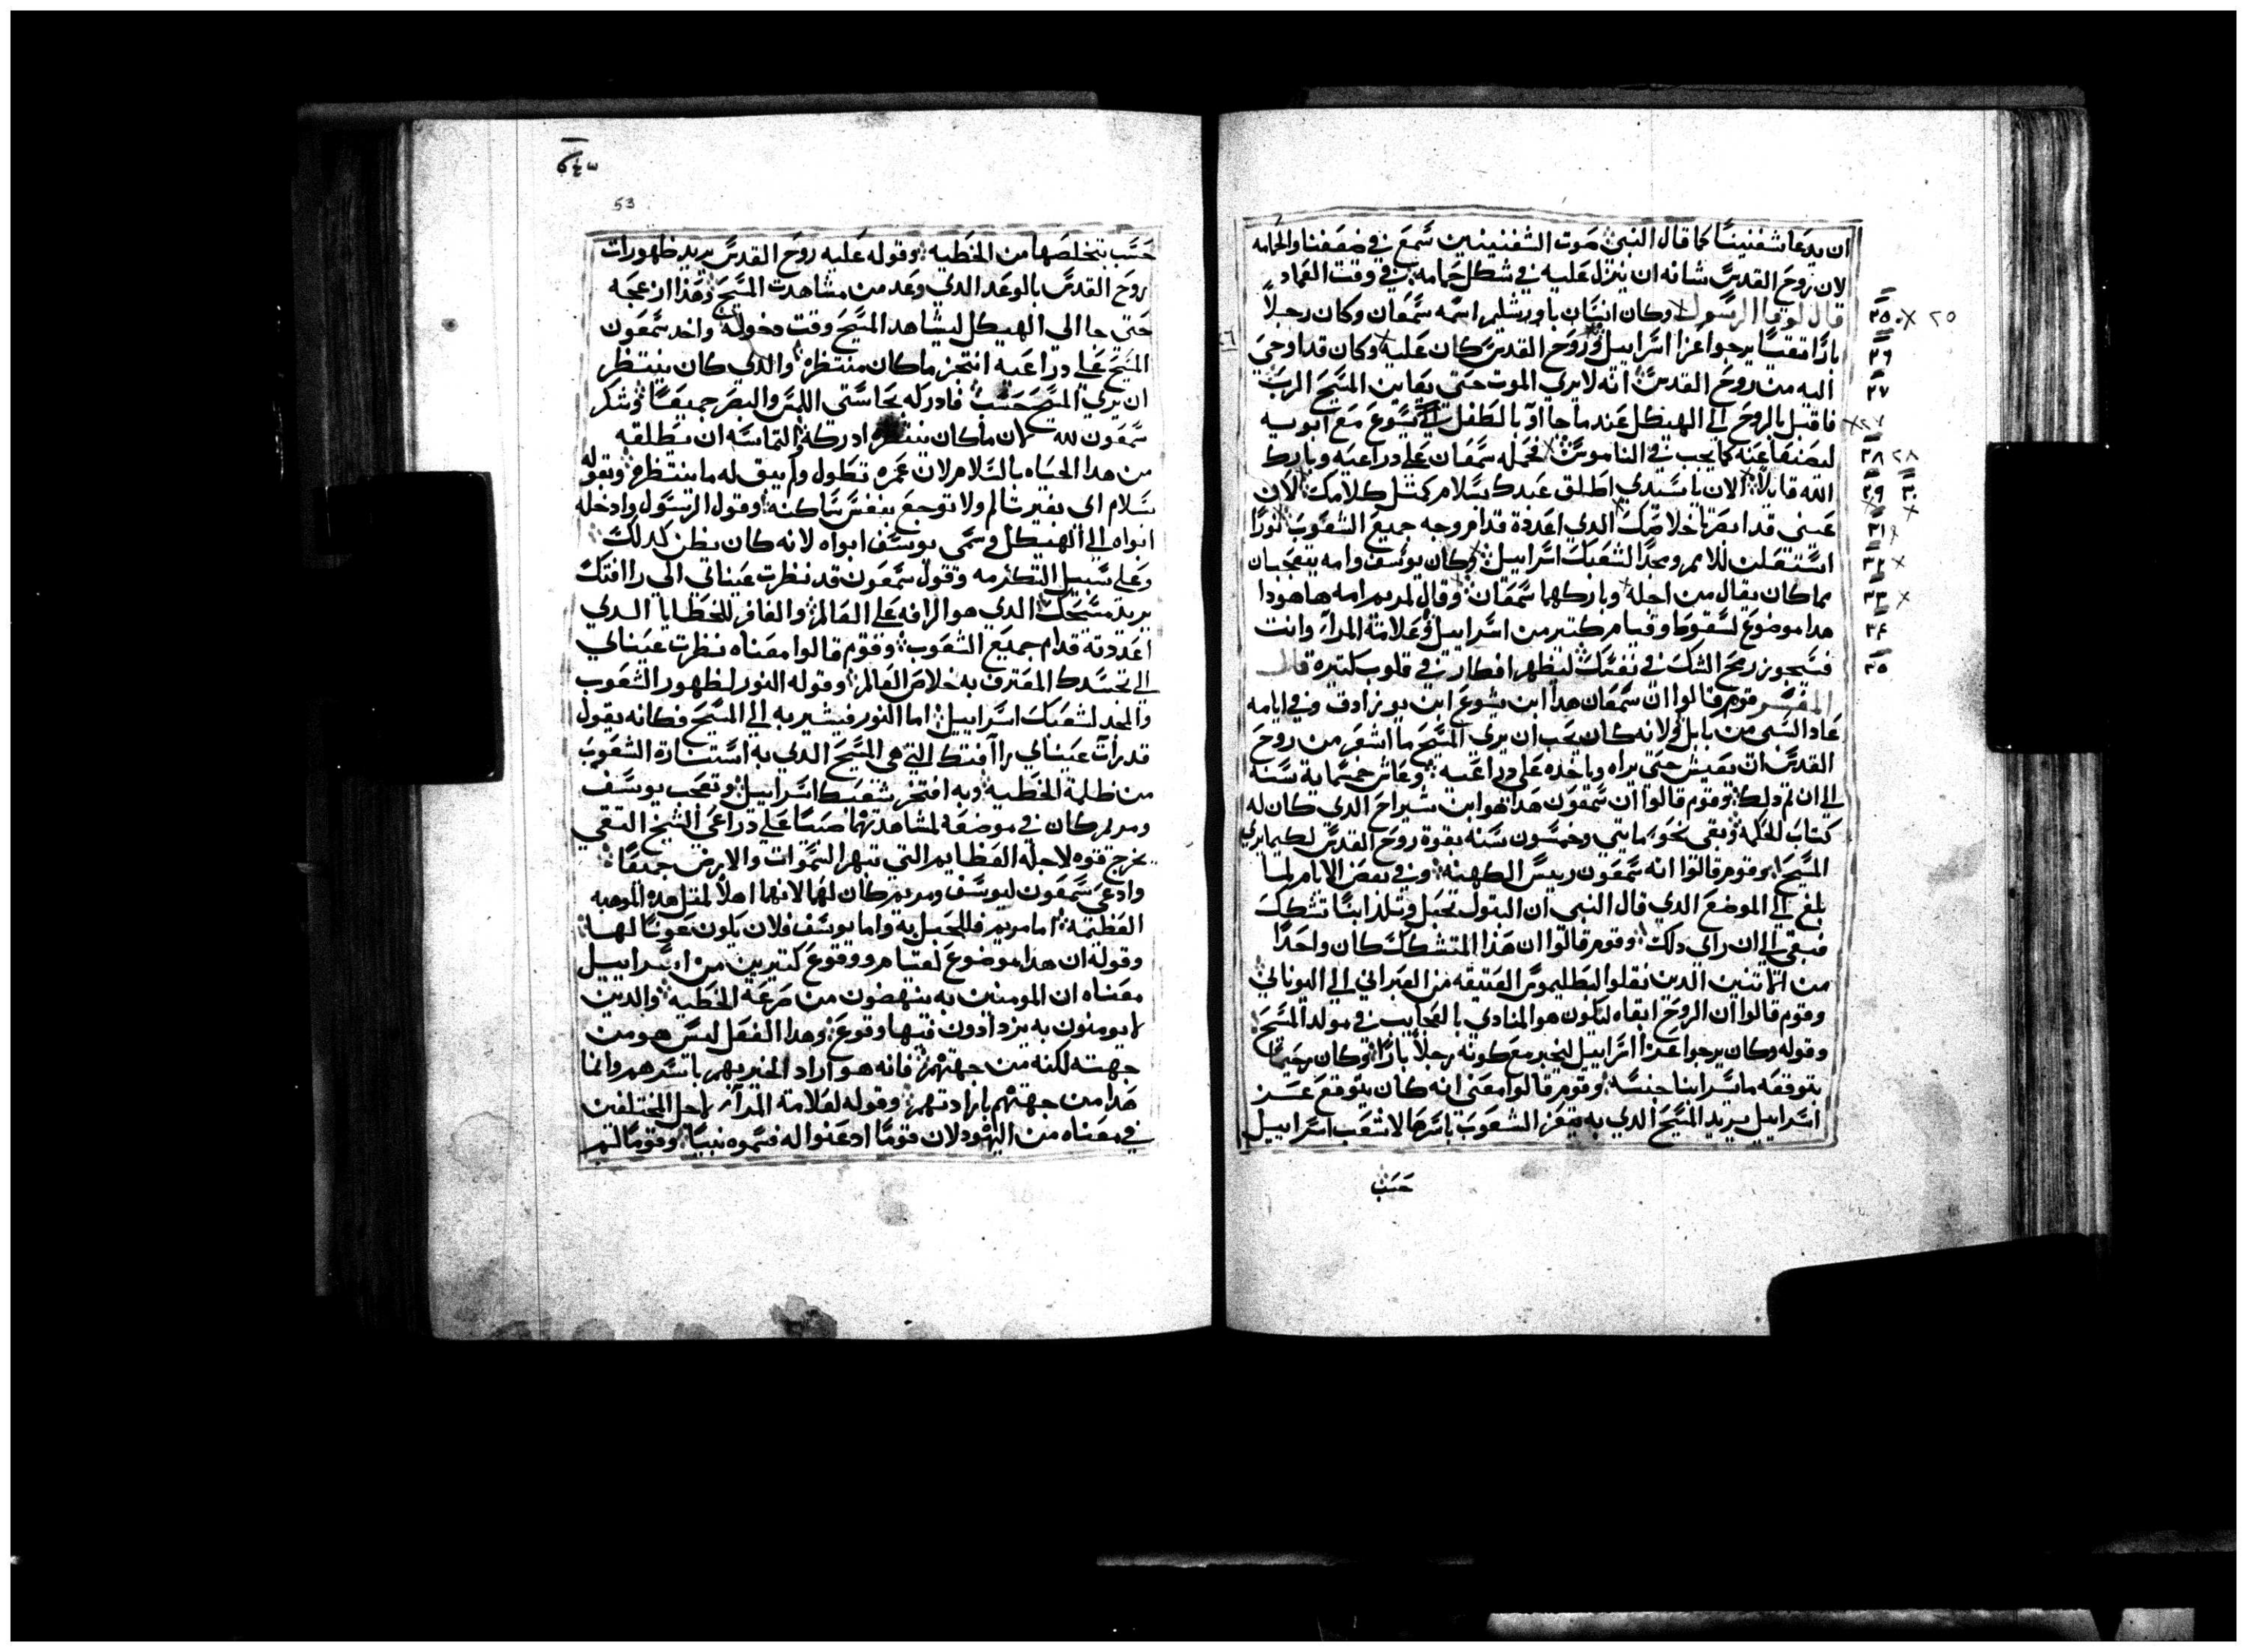 ان يدعا شفنينا كما قال النبي صوت الشفنينين سمع في ضيعتنا والحمامه
لان روح القدس شانه ان ينزل عليه في شكل حمامه في وقت العماد
قال لوقا الرسول وكان انسان باورشليم اسمه سمعان وكان رجلا
بارا تقيا يرجوا عزا اسراييل وروح القدس كان عليه وكان قد اوحي
اليه من روح القدس انه لا يري الموت حتي يعاين المسيح الرب
فاقبل بالروح الي الهيكل عند ما جااو بالطفل يسوع مع ابويه
ليصنعا عنه كما يجب في الناموس فحمله سمعان علي دراعيه وبارك
الله قايلا الان يا سيدي اطلق عبدك بسلام كمثل كلامك لان
عيني قد ابصرتا خلاصك الدي اعددته قدام وجه جميع الشعوب نورا
استعلن للامم ومجدا لشعبك اسراييل وكان يوسف وامه يتعجبان
مما كان يقال من اجله وباركهما سمعان وقال لمريم امه هاهودا
هدا موضوع لسقوط وقيام كتير من اسراييل وعلامة المرآء وانت
فسيجوز رمح الشك في نفسك ليظهر افكار في قلوب كتيره قال
المفسر قوم قالوا ان سمعان هدا ابن يشوع ابن يوزادق وفي ايامه
عاد السبي من بابل ولانه كان يحب ان يري المسيح ما اشعر من روح
القدس ان يعيش حتي يراه وياخده علي دراعيه وعاش خمسماية سنه
الي ان تم دلك وقوم قالوا ان سمعون هدا هو ابن شيراخ الدي كان له
كتاب الحكمه وبقي نحو مايتي وخمسون سنه بقوة روح القدس لكيما يري
المسيح وقوم قالوا انه سمعون رييس الكهنه وفي بعض الايام لما
بلغ الي الموضع الدي قال النبي ان البتول تحبل وتلد ابنا تشكك
فبقي الي ان راي دلك وقوم قالوا ان هذا المتشكك كان واحدا
من الدين نقلوا لبطليموس العتيقه من العبراني الي اليوناني
وقوم قالوا ان الروح ابقاه ليكون هو المنادي بالعجايب في مولد المسيح
وقوله وكان يرجوا عزا اسراييل ليخبر مع كونه رجلا بارا وكان رحيما
بتوقعه ما يسر ابنا جنسه وقوم قالوا معني انه كان يتوقع عز
اسراييل يريد المسيح الدي به يتعز الشعوب باسرها لا شعب اسراييل
حسب
53
حسب بتخلصها من الخطيه وقوله عليه روح القدس يريد ظهورات
روح القدس بالوعد الدي وعد من مشاهدت المسيح وهذا ازعجه
حتي جا الي الهيكل ليشاهد المسيح وقت دخوله واخد سمعون
المسيح علي دراعيه انتجز ما كان منتظره والدي كان ينتظر
ان يري المسيح حسب فادركه بحاستي اللمس والبصر جميعا وشكر
سمعون لله لان ما كان ينتظره ادركه والتماسه ان تطلقه
من هدا الحياه بالسلام لان عمره تطول ولم يبق له ما ينتظره وبقوله
بسلام اي بغير تالم ولا توجع بنفس ساكنه وقول الرسول وادخله
ابواه الي الهيكل وسمي يوسف ابواه لانه كان يظن كدلك
وعلي سبيل التكرمه وقول سمعون قد نظرت عيناني الي راافتك
يريد مسيحك الدي هو الرافه علي العالم والغافر للخطايا الدي
اعددته قدام جميع الشعوب وقوم قالوا معناه نظرت عيناني
الي تجسدك المقترف به خلاص العالم وقوله النور لظهور الشعوب
والمجد لشعبك اسراييل اما النور فيشير به الي المسيح فكانه يقول
قد رات عيناني راافتك التي هي المسيح الدي به استنارة الشعوب
من ظلمة الخطيه وبه افتخر شعبك اسراييل وتعجب يوسف
ومريم كان في موضعه لمشاهدتهما صبيا علي دراعي الشيخ التقي
يخرج قوه لاجله العظايم التي تبهر السموات والارض جميعا
وادعي سمعون ليوسف ومريم كان لهما لانهما اهلا لمثل هده الموهبه
العظيمه اما مريم فللحبل به واما يوسف فلان يكون عونا لها
وقوله ان هدا موضوع لقيام ووقوع كتيرين من اسراييل
معناه ان المومنين به ينهضون من صرعة الخطيه والدين
لا يومنون به يزدادون فيها وقوع وهدا الفعل ليس هو من
جهته لكنه من جهتهم فانه هو اراد الخير بهم باسرهم وانما
هدا من جهتهم بارادتهم وقوله لعلامة المرآء لاجل المختلفين
في معناه من اليهود لان قوما ادعنوا له فسموه نبيا وقوما لم